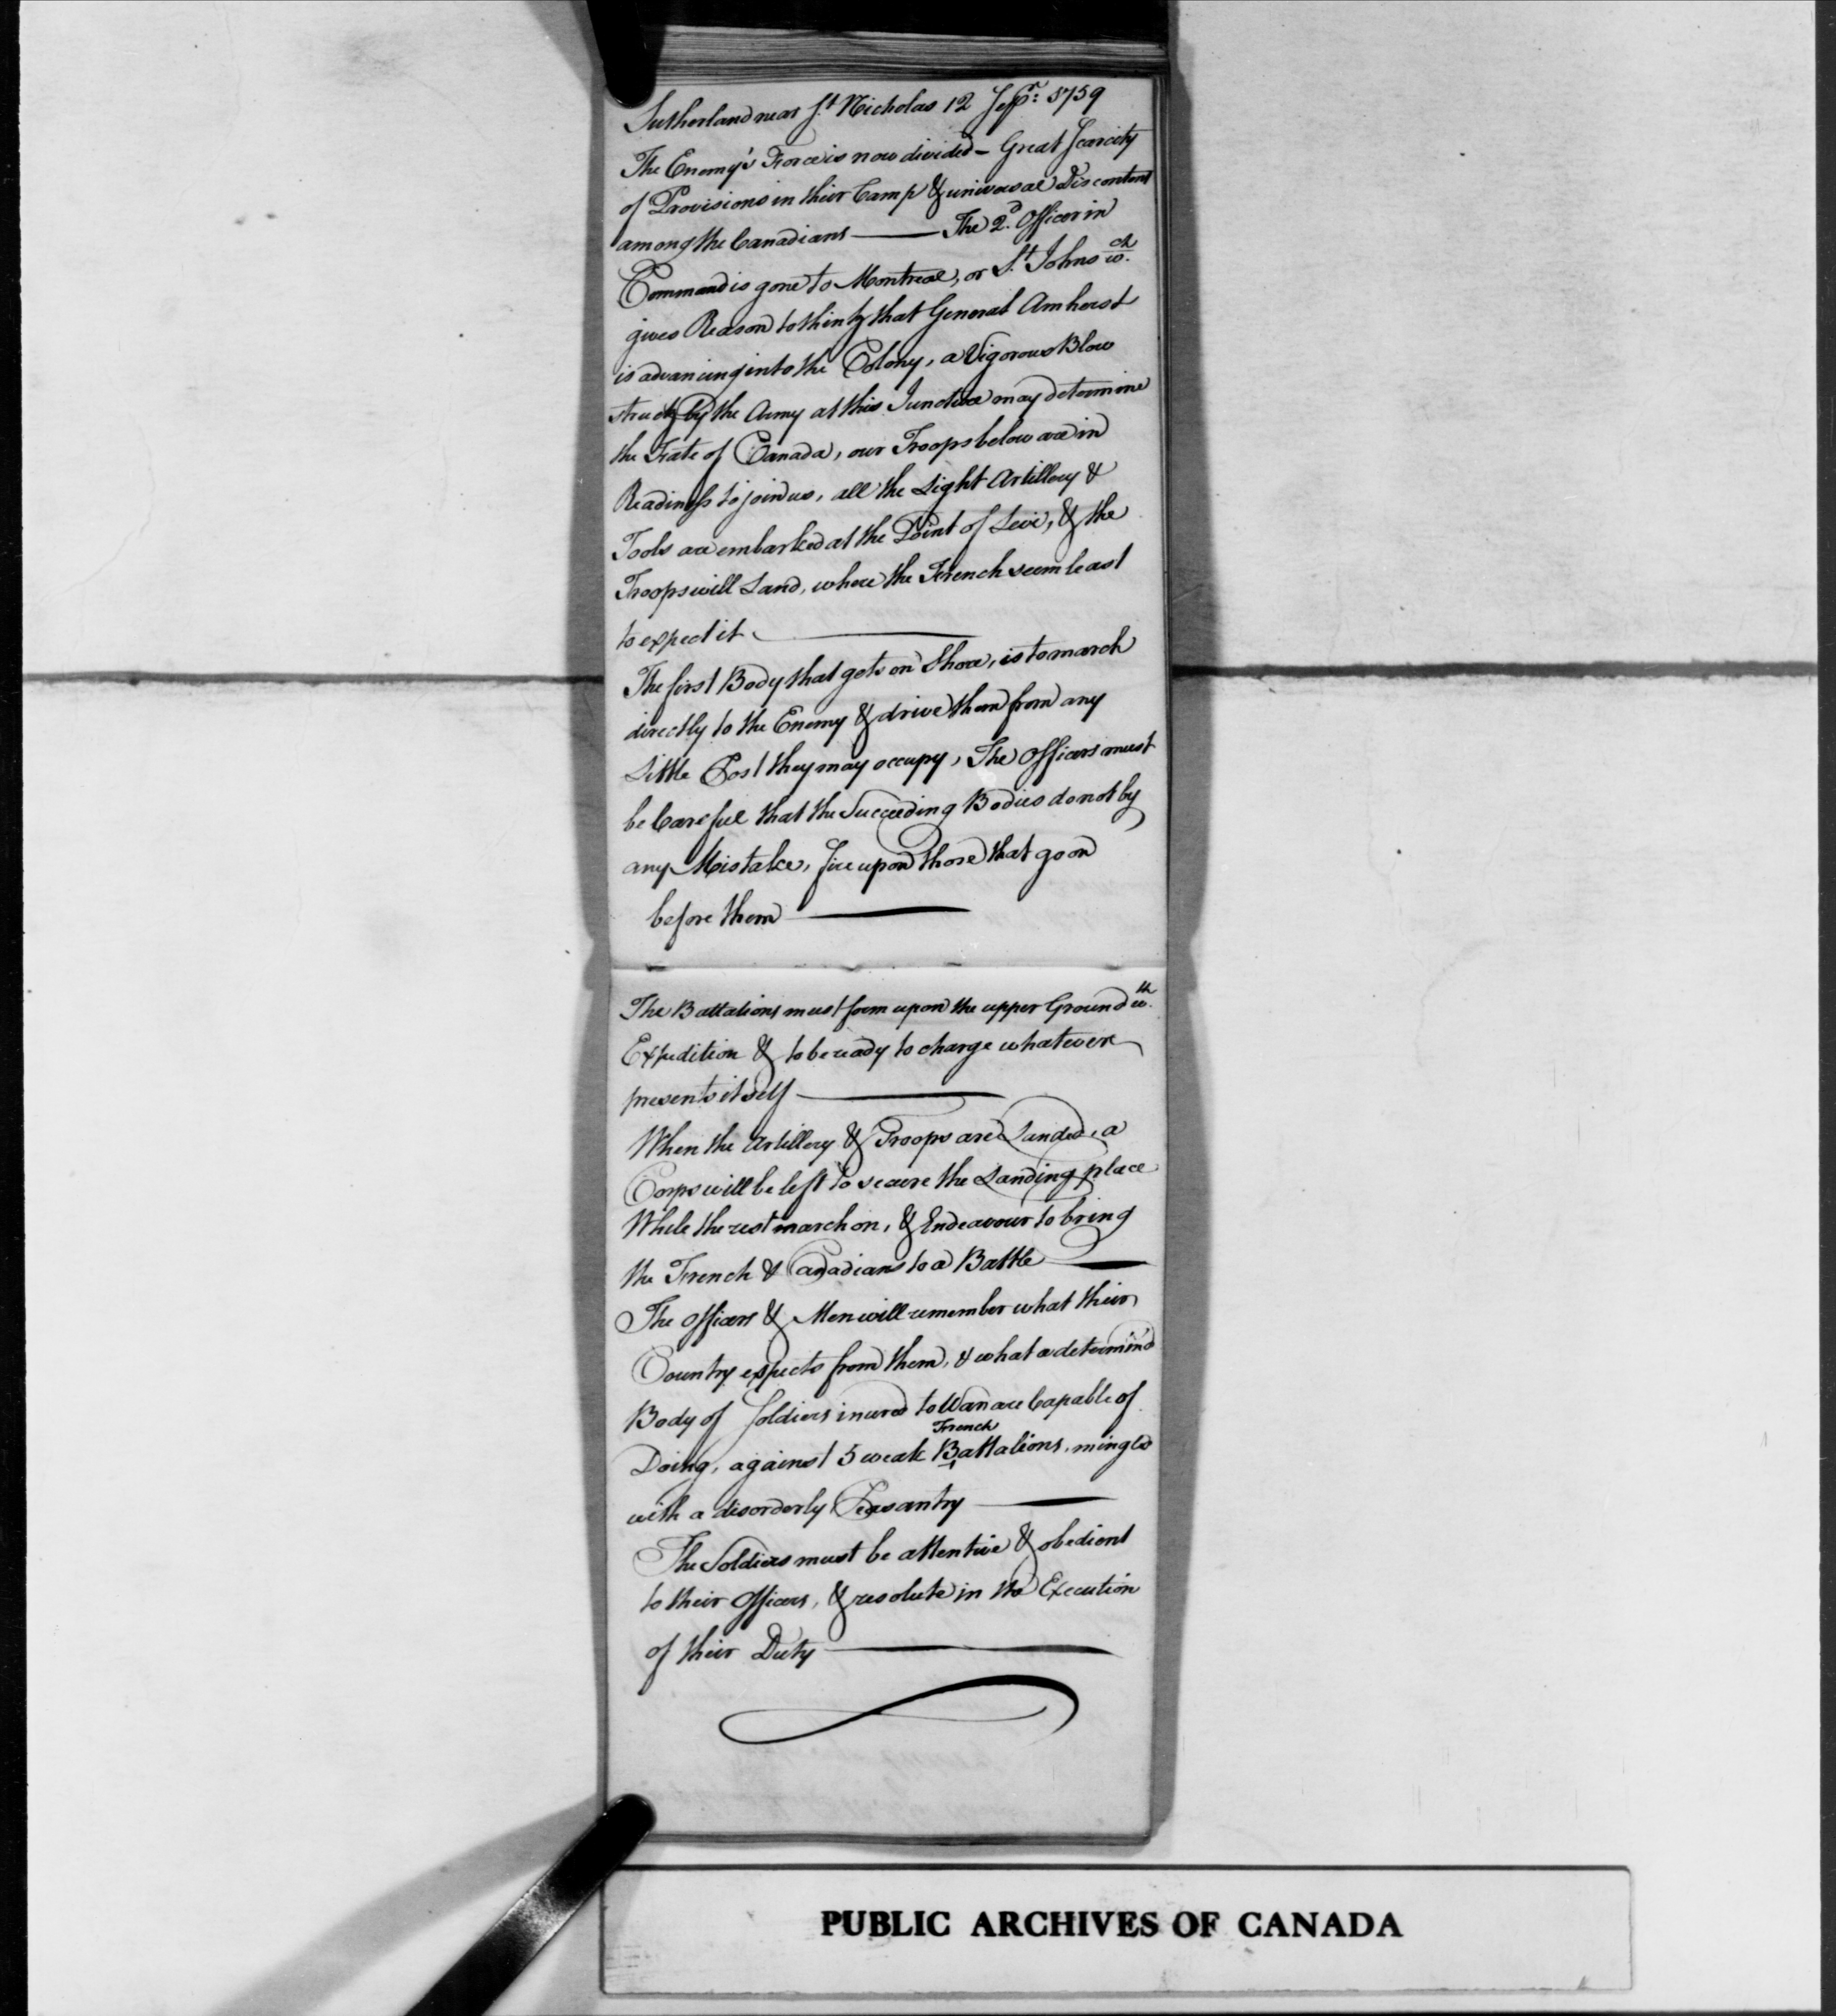 Sutherland near St. Nicholas 12 Sepr: 1759
The Enemy's Force is now divided - Great Scarcity
of Provisions in their Camp & universal Discontent
among the Canadians — The 2d. Officer in
Command is gone to Montreal, or St. Johns wch.
gives Reason to think that General Amherst
is advancing into the Colony, a Vigorous Blow
struck by the Army at this Juncture may determine
the Fate of Canada, our Troops below are in
Readiness to join us, all the Light Artillery &
Tools are embarked at the Point of Levi, & the
Troops will Land, where the French seem least
to expect it —
The first Body that gets on Shore, is to march
directly to the Enemy & drive them from any
Little Post they may occupy, The Officers must
be Careful that the Succeeding Bodies do not by
any Mistake, fire upon those that go on
before them —
The Battalions must form upon the upper Ground wth.
Expedition & to be ready to charge whatever
presents itself —
When the Artillery & Troops are Landed, a
Corps will be left to secure the Landing place
While the rest march on, & Endeavour to bring
the French & Canadians to a Battle —
The Officers & Men will remember what their
Country expects from them, & what a determin'd
Body of Soldiers inured to War are Capable of
Doing, against 5 weak French Battalions, mingled
with a disorderly Peasantry —
The Soldiers must be attentive & obedient
to their Officers, & resolute in the Execution
of their Duty —
PUBLIC ARCHIVES OF CANADA